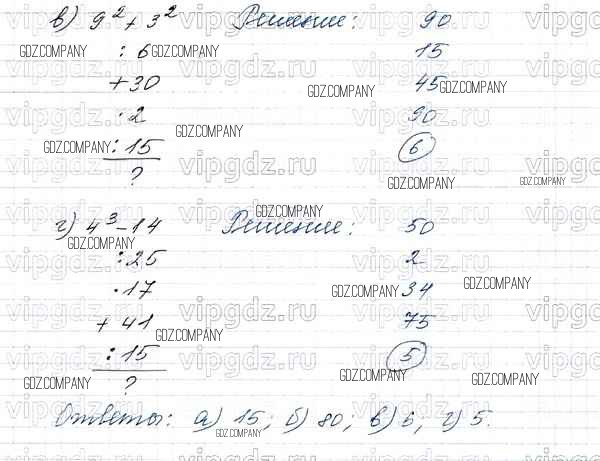 в) 9² + 3² Решение: 90
: 6 15
+ 30 45
· 2 90
: 15 6
?
г) 4³ - 14 Решение: 50
: 25 2
· 17 34
+ 41 75
: 15 5
?
Ответы: а) 15; б) 80; в) 6; г) 5.
GDZ.COMPANY
vipgdz.ru